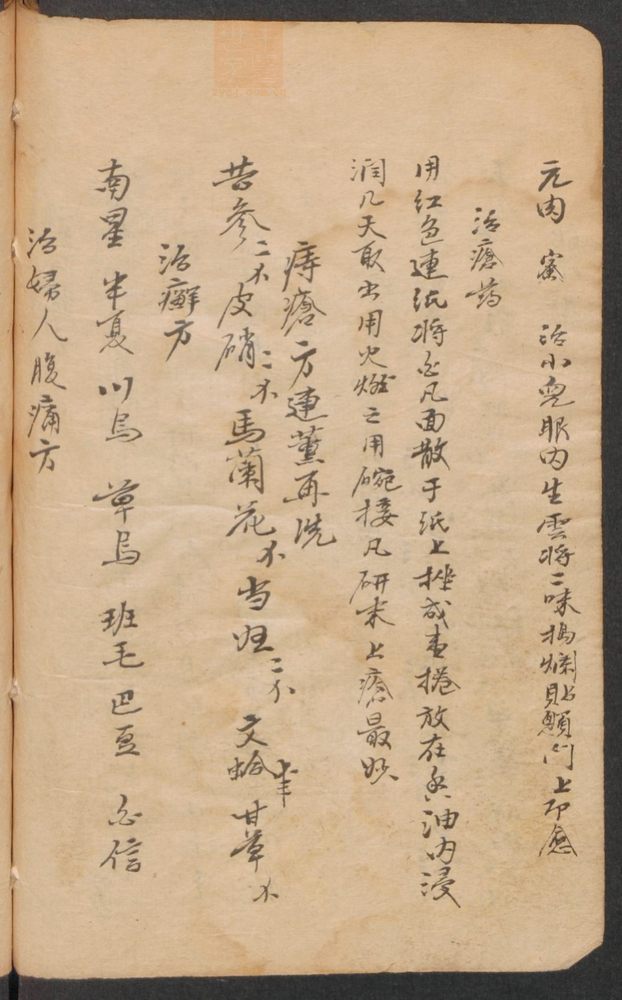 元肉 蜜 治小児眼内生雲将二味搗爛貼顖门上即愈
治瘡药
用红色連纸将白凡面散于纸上捲成書捲放在香油内浸
润几天取出用火燃之用碗接凡研末上瘡最妙
痔瘡方連薰再洗
苦参二个皮硝二个馬蘭花个当归二个文蛤半甘草个
治癬方
南星 半夏 川烏 草烏 班毛 巴豆 白信
治婦人腹痛方